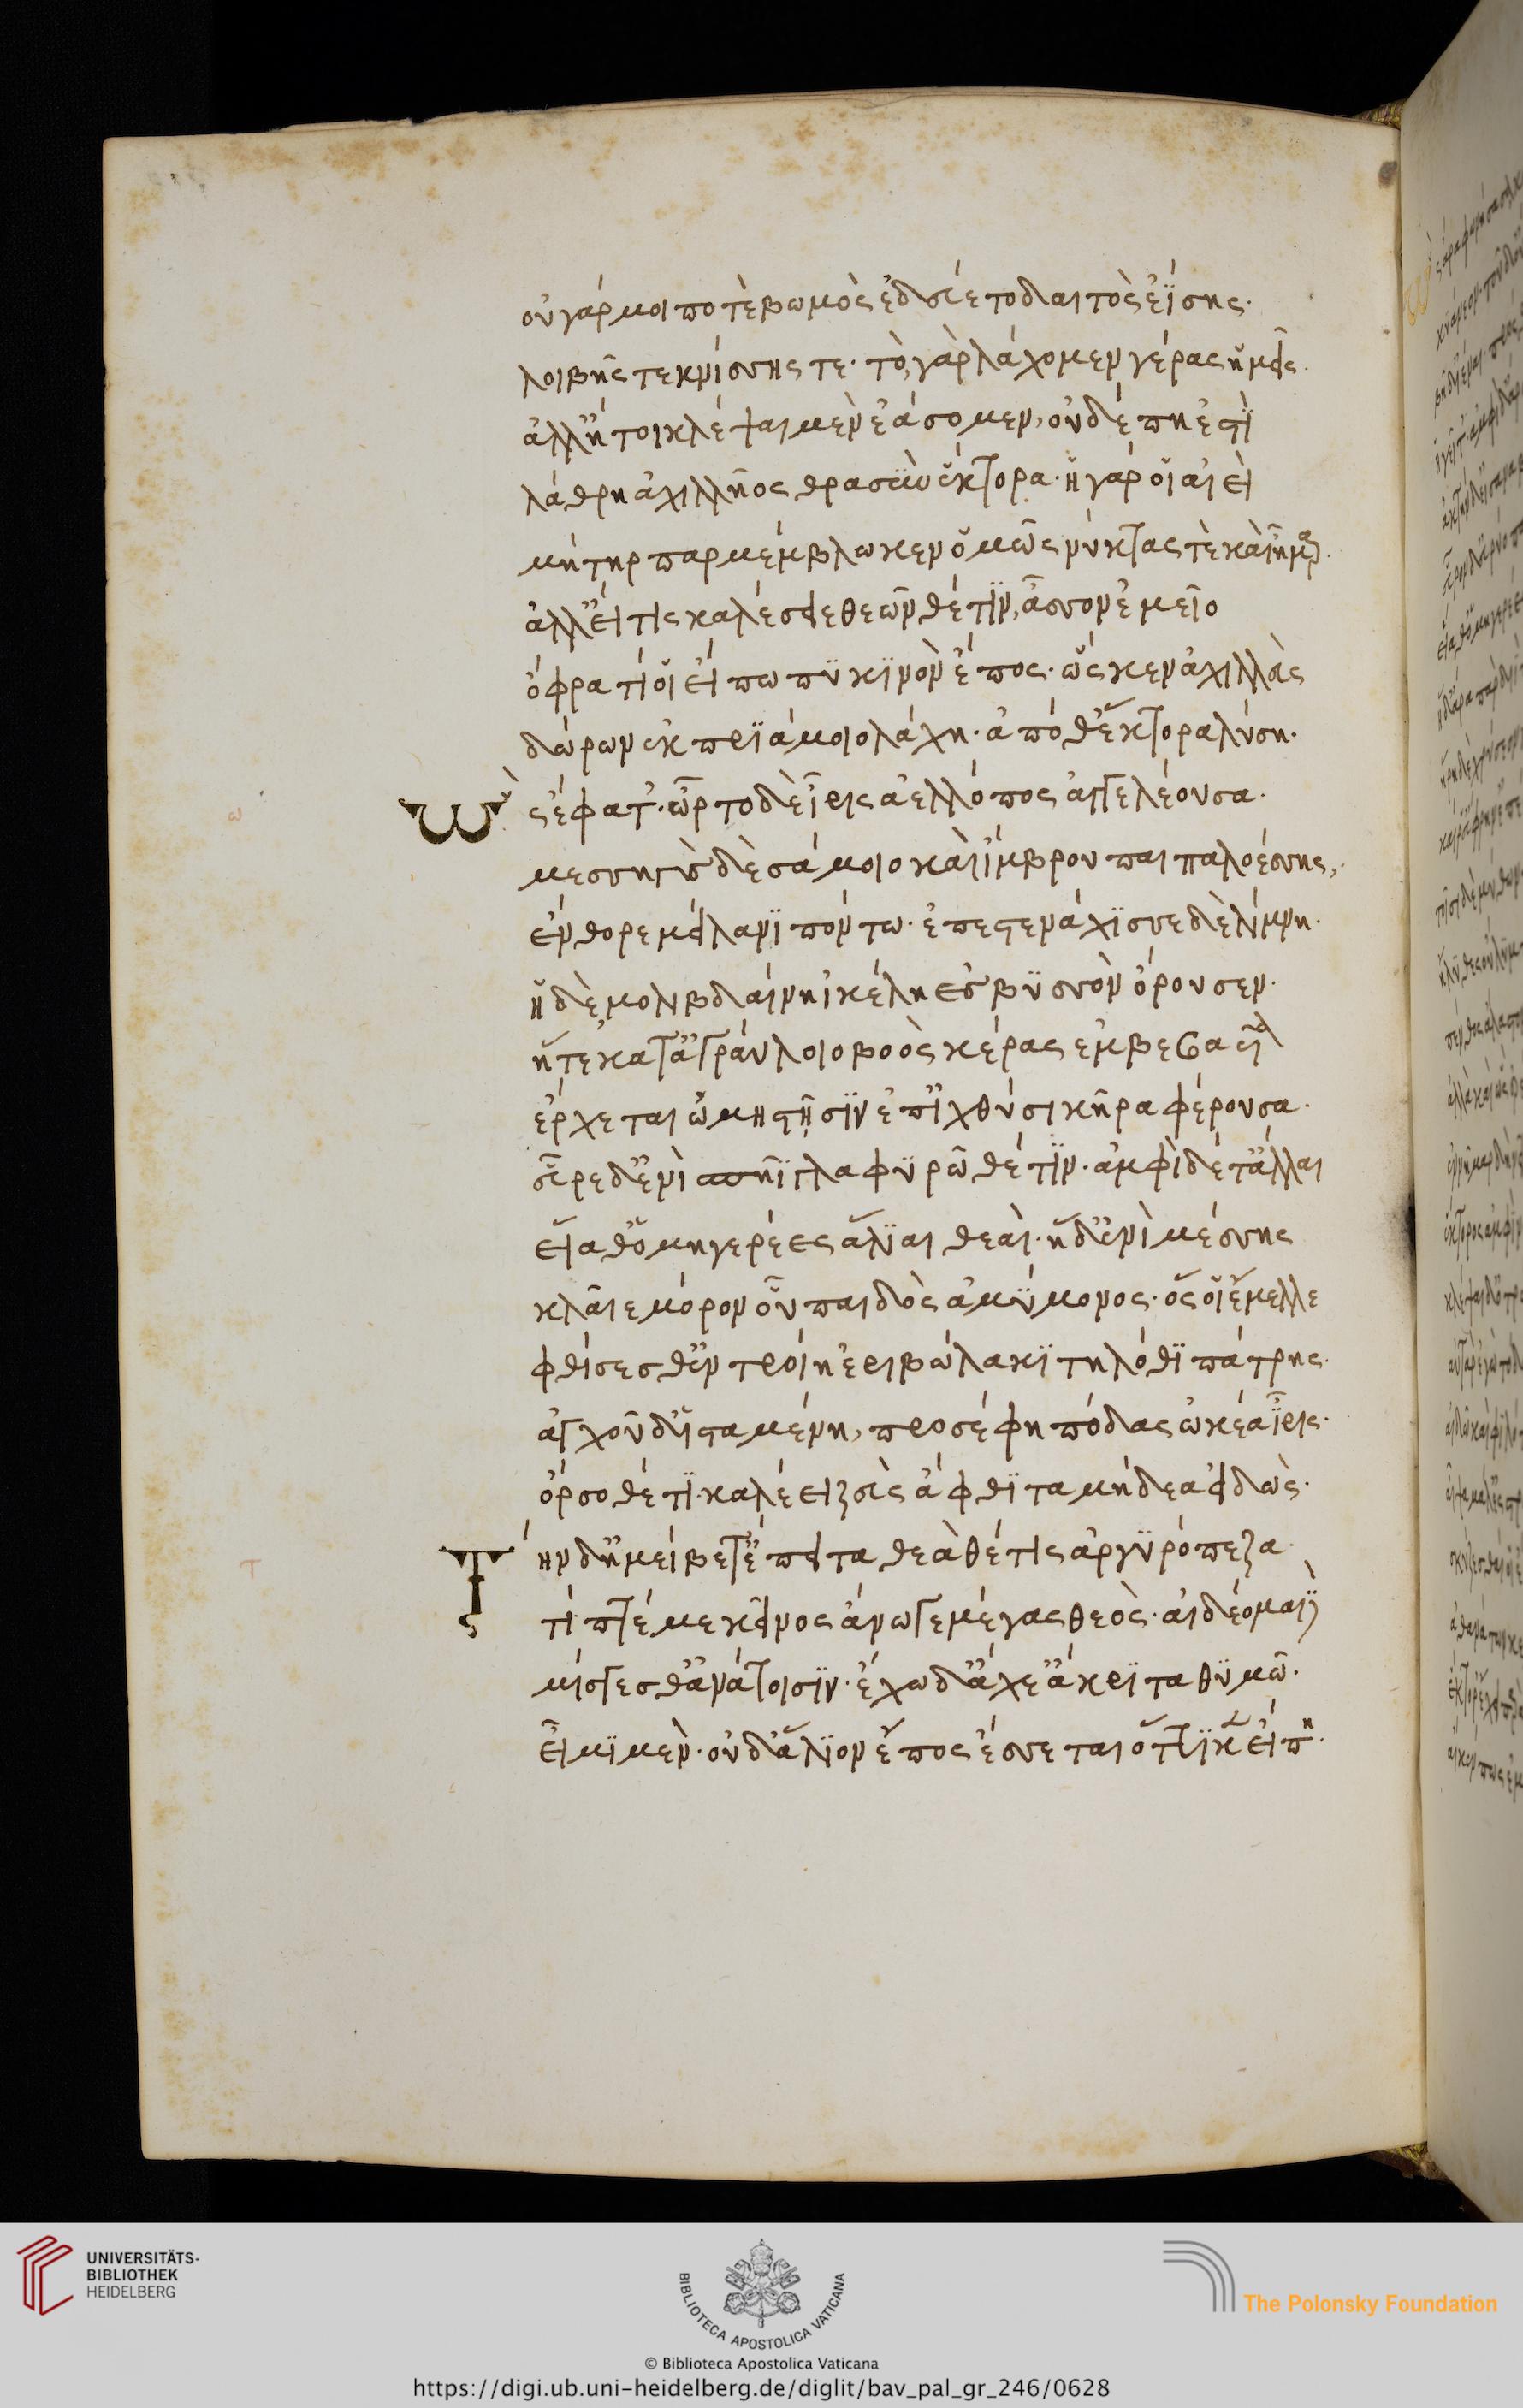 οὐ γάρ μοι ποτὲ βωμὸς ἐδεύετο δαιτὸς ἐΐσης·
λοιβῆς τε κνίσσης τε· τὸ γὰρ λάχομεν γέρας ἡμεῖς.
ἀλλ' ἤτοι κλέψαι μὲν ἐάσομεν, οὐδέ πη ἐστὶ
λάθρη ἀχιλλῆος θρασὺν ἕκτορα· ἦ γάρ οἱ αἰεὶ
μήτηρ παρμέμβλωκεν ὁμῶς νύκτας τὲ καὶ ἦμαρ.
ἀλλ' εἴ τις καλέσειε θεῶν θέτιν, ἆσσον ἐμεῖο
ὄφρα τί οἱ εἴπω πυκινὸν ἔπος· ὥς κεν ἀχιλλεὺς
δώρων ἐκ πριάμοιο λάχη· ἀπό θ' ἕκτορα λύση·
Ὣς ἔφατ'· ὦρτο δὲ ἶρις ἀελλόπος ἀγγελέουσα·
μεσσηγὺς δὲ σάμοιο καὶ ἴμβρου παιπαλοέσσης,
ἔνθορε μείλανι πόντω· ἐπεστενάχισσε δὲ λίμνη·
ἡ δὲ μολυβδαίνη ἰκέλη ἐς βυσσὸν ὄρουσεν·
ἥτε κατ' ἀγραύλοιο βοὸς κέρας ἐμβεβαυῖα
ἔρχεται ὠμηστῆσιν ἐπ' ἰχθύσι κῆρα φέρουσα·
εὗρε δ' ἐνὶ σπῆϊ γλαφυρῶ θέτιν· ἀμφὶ δέ τ' ἄλλαι
εἵαθ' ὁμηγερέες ἅλιαι θεαί· ἡ δ' ἐνὶ μέσσης
κλαῖε μόρον οὗ παιδὸς ἀμύμονος· ὅς οἱ ἔμελλε
φθίσεσθ' ἐν τροίη ἐριβώλακι τηλόθι πάτρης·
ἀγχοῦ δ' ἱσταμένη, προσέφη πόδας ὠκέα ἶρις·
ὄρσο θέτι· καλέει ζεὺς ἄφθιτα μήδεα εἰδώς·
Τὴν δ' ἠμείβετ' ἔπειτα θεὰ θέτις ἀργυρόπεζα·
τίπτέ με κεῖνος ἄνωγε μέγας θεός· αἰδέομαι δὲ
μίσγεσθ' ἀθανάτοισιν· ἔχω δ' ἄχε' ἄκριτα θυμῶ·
εἶμι μέν· οὐδ' ἅλιον ἔπος ἔσσεται ὅττί κεν εἴπη·
UNIVERSITÄTS-
BIBLIOTHEK
HEIDELBERG
BIBLIOTECA APOSTOLICA VATICANA
The Polonsky Foundation
© Biblioteca Apostolica Vaticana
https://digi.ub.uni-heidelberg.de/diglit/bav_pal_gr_246/0628